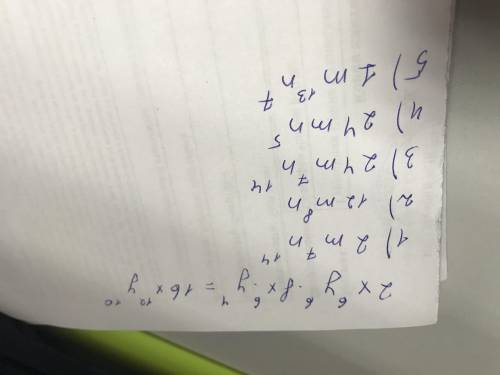 2x⁶y⁶·8x⁶·y⁴=16x¹²y¹⁰
1) 2m⁷n¹⁴
2) 12m⁸n
3) 24m⁷n¹⁴
4) 24mn⁵
5) 1m¹³n⁷